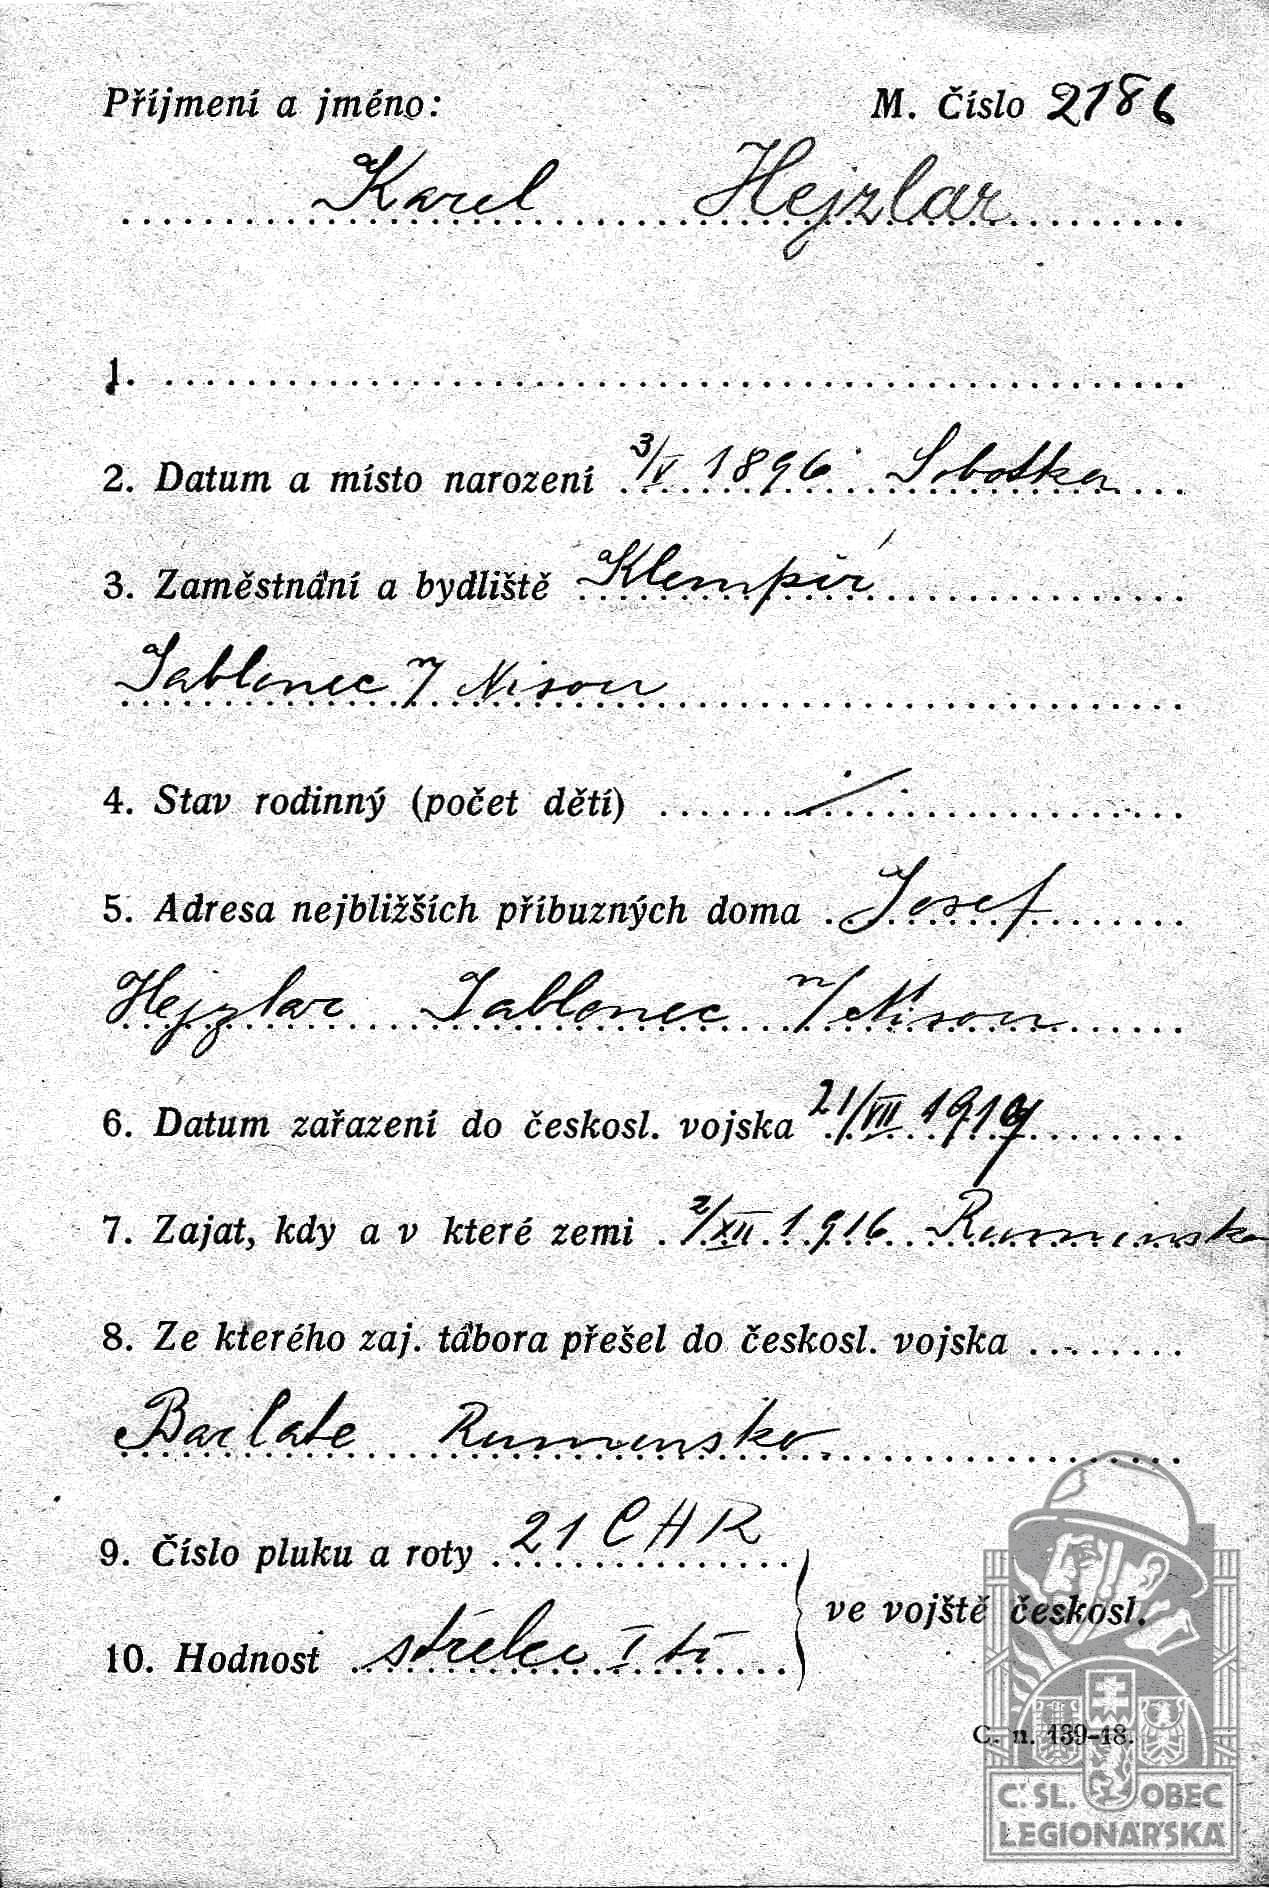 Příjmení a jméno: M. Číslo 2186
Karel Hejzlar
1.
2. Datum a místo narození 3/V 1896 Sobotka
3. Zaměstnání a bydliště Klempíř
Jablonec n/ Nisou
4. Stav rodinný (počet dětí) ./.
5. Adresa nejbližších příbuzných doma Josef
Hejzlar Jablonec n/ Nisou
6. Datum zařazení do českosl. vojska 21/VII
7. Zajat, kdy a v které zemi 2/XII 1916 Rumunsko
8. Ze kterého zaj. tábora přešel do českosl. vojska
Barlate Rumunsko
9. Číslo pluku a roty 21 CHR
ve vojště českosl.
10. Hodnost střelec I tř
C. n. 139-18.
Č. SL. OBEC
LEGIONÁŘSKÁ